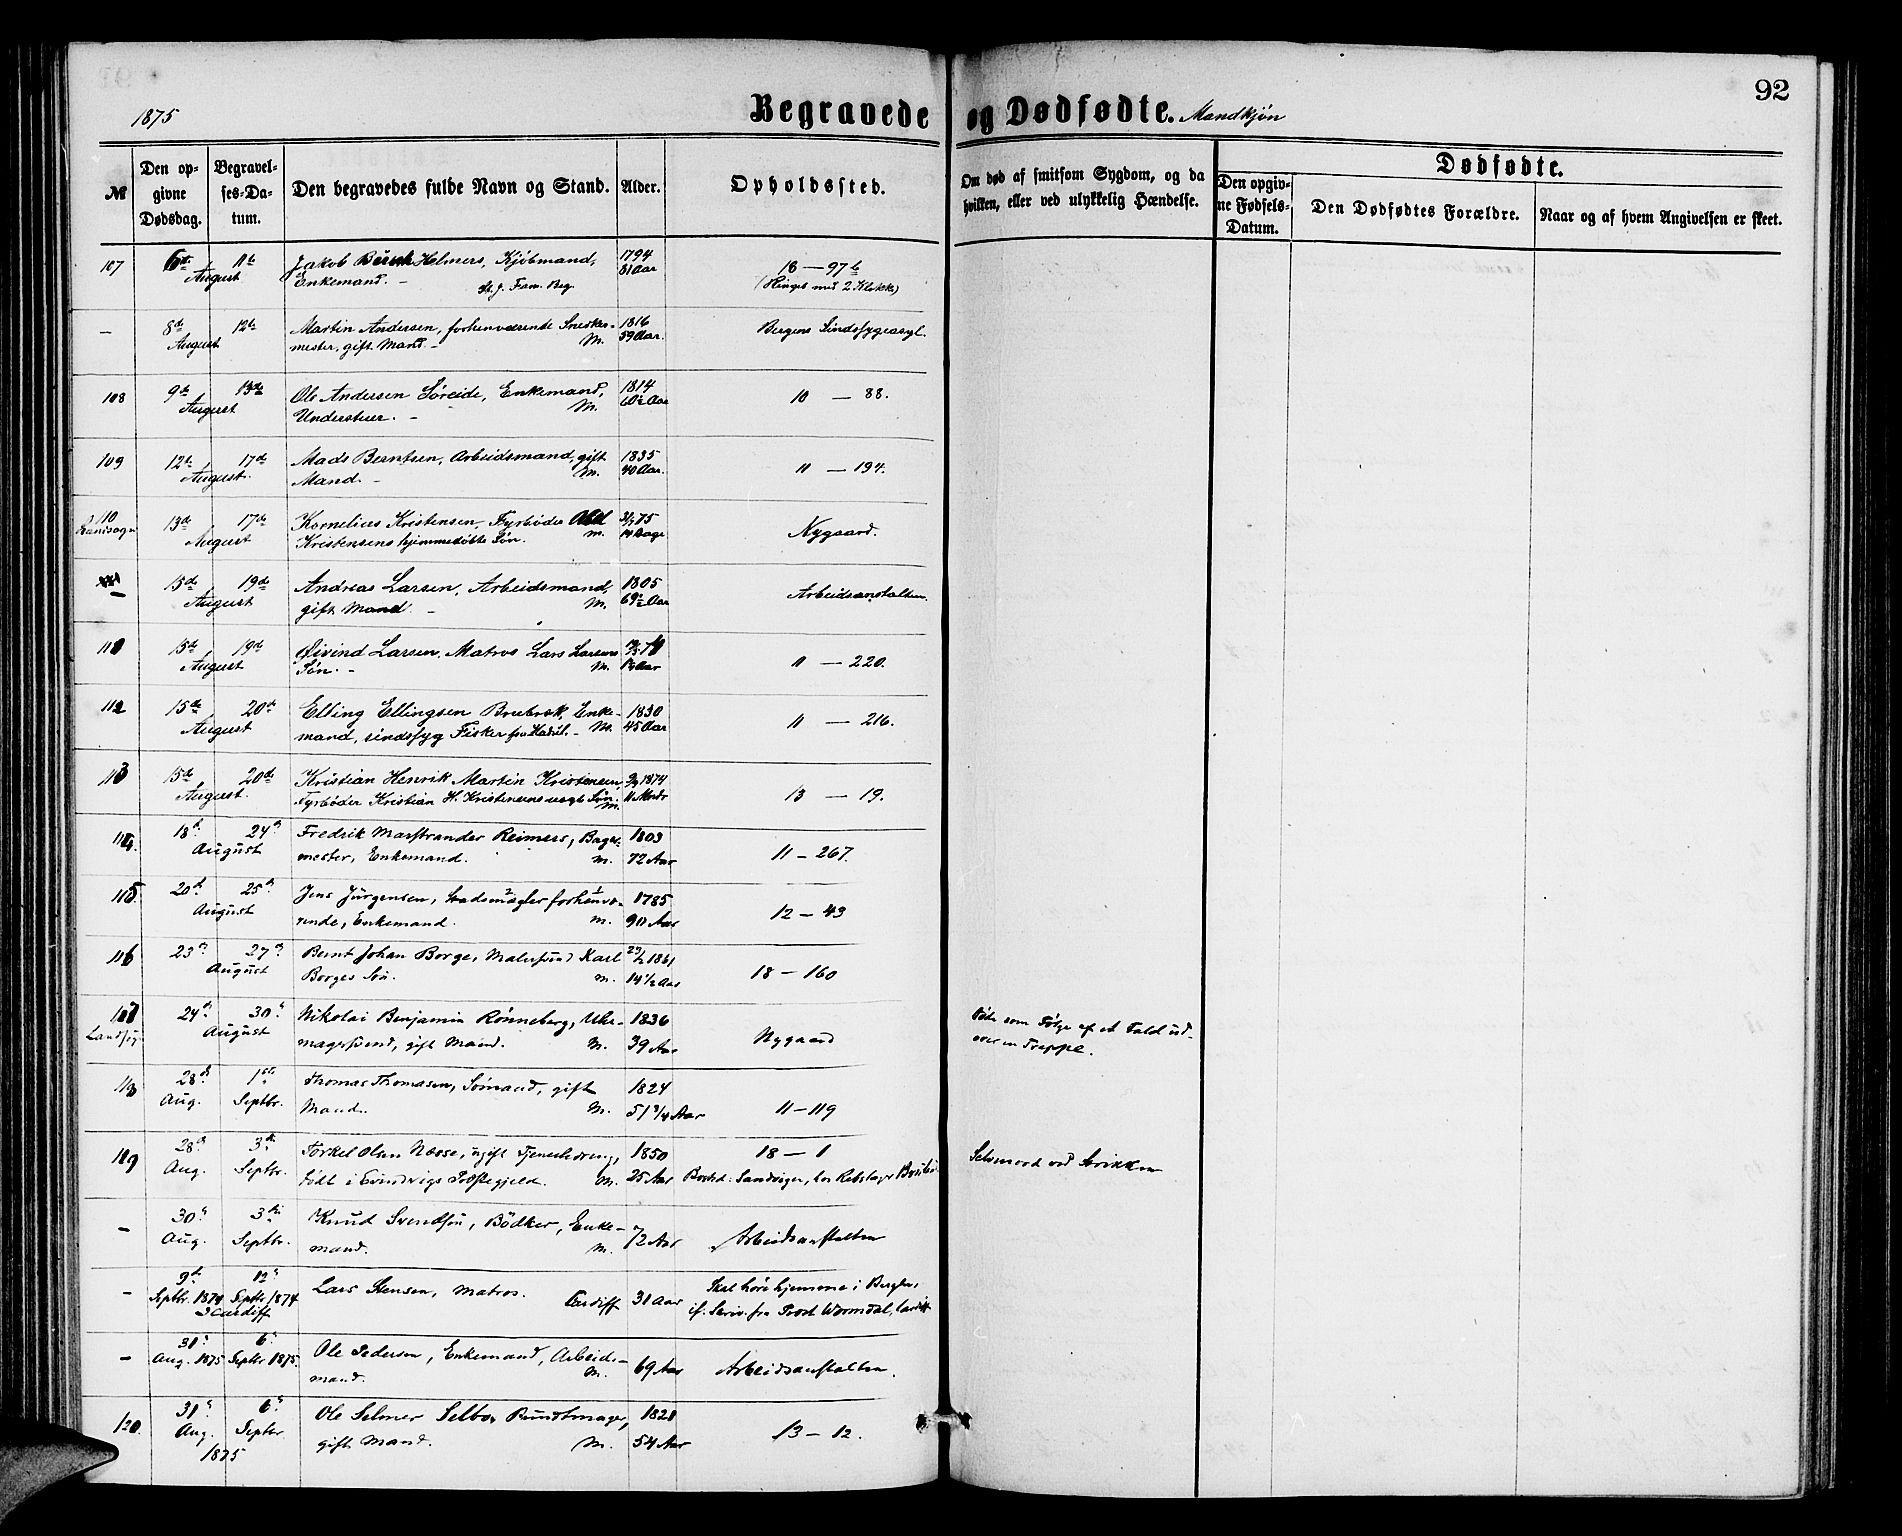 92
1875
Begravede og Dødfødte. Mandkjön
№
Den opgivne Dødsdag.
Begravelses-Datum.
Den begravedes fulde Navn og Stand.
Alder.
Opholdssted.
Om død af smitsom Sygdom, og da hvilken, eller ved ulykkelig Hændelse.
Dødfødte.
Den opgivne Fødsels-Datum.
Den Dødfødtes Forældre.
Naar og af hvem Angivelsen er skeet.
107 6te 11te Jakob Helmers, Kjöbmand, 1794 18 — 97b
August Enkemand. — St. J. Fam. Beg. 81 Aar (Ringet med 2 Klokker)
— 8de 12te Martin Andersen, forhenværende Snedker- 1816 Bergens Sindssygeasyl.
August mester, gift Mand. — M. 59 Aar.
108 9de 13de Ole Andersen Söreide, Enkemand, 1814 10 — 88.
August Understuer. — M. 60½ Aar
109 12te 17de Mads Berntsen, Arbeidsmand, gift 1835 11 — 194.
August. Mand. — M. 40 Aar.
110 13de 17de Kornelius Kristensen, Fyrböder 31/7 75 Nygaard.
Landsogn August Kristensens hjemmedöbte Sön. M. 14 Dage
— 15de 19de Andreas Larsen, Arbeidsmand, 1805 Arbeidsanstalten.
August gift Mand. — M. 69½ Aar
111 15de 19de Øivind Larsen, Matros Lars Larsens 11 — 220.
August Sön. — M. Aar
112 15de 20de Elling Ellingsen Brubræk, Enke- 1830 11 — 216.
August mand, sindssyg Fisker fra — M. 45 Aar
113 15de 20de Kristian Henrik Martin Kristensen, 1874 13 — 19.
August. Fyrböder Kristian H. Kristensens Sön. M. 11 Mndr
114. 18de 24de Fredrik Marstrander Reimers, Bager- 1803 11 — 267.
August mester, Enkemand. M. 72 Aar
115 20de 25de Jens Jürgensen, Stadsmægler forhenvæ- 1785 12 — 43
August rende, Enkemand. M. 90 Aar
116 23de 27de Bernt Johan Borge, Malersvend Karl 1861 18 — 160
August Borges Sön. M. 14½ Aar
117 24de 30te Nikolai Benjamin Rönneberg, Uhr- 1836 Nygaard Döde som Fölge af et Fald ud-
Landsogn August magersvend, gift Mand. M. 39 Aar over en Trappe.
118 28de 1ste Thomas Thomasen, Sömand, gift 1824
Aug. Septbr. Mand. M. 51¾ Aar 11 — 119
119 28de 3die Torkel Olsen Næsse, ugift Tjenestedreng, 1850 18 — 1 Selvmord ved Strikken
Aug. Septbr. födt i Evindvigs Præstegjeld. M. 25 Aar Bosted: Sandvigen, hos Rebslager
— 30te 3die Knud Svendsen, Bödker, Enke- 72 Aar Arbeidsanstalten
Aug. Septbr. mand. M.
— 9de 12te Lars Stensen, Matros. Cardiff 31 Aar Skal höre hjemme i Bergen,
Septbr. 1874 Septbr 1874 if. Skriv. fra Prost Wormdal,
i Cardiff
— 30te 6te Ole Pedersen, Enkemand, Arbeids- 69 Aar Arbeidsanstalten.
Aug. 1875 Septbr 1875. mand. M.
120. 31te 6te Ole Selmer Selboe, Bundtmager, 1821 13 — 12.
Aug. Septbr. gift Mand. M. 54 Aar
1875